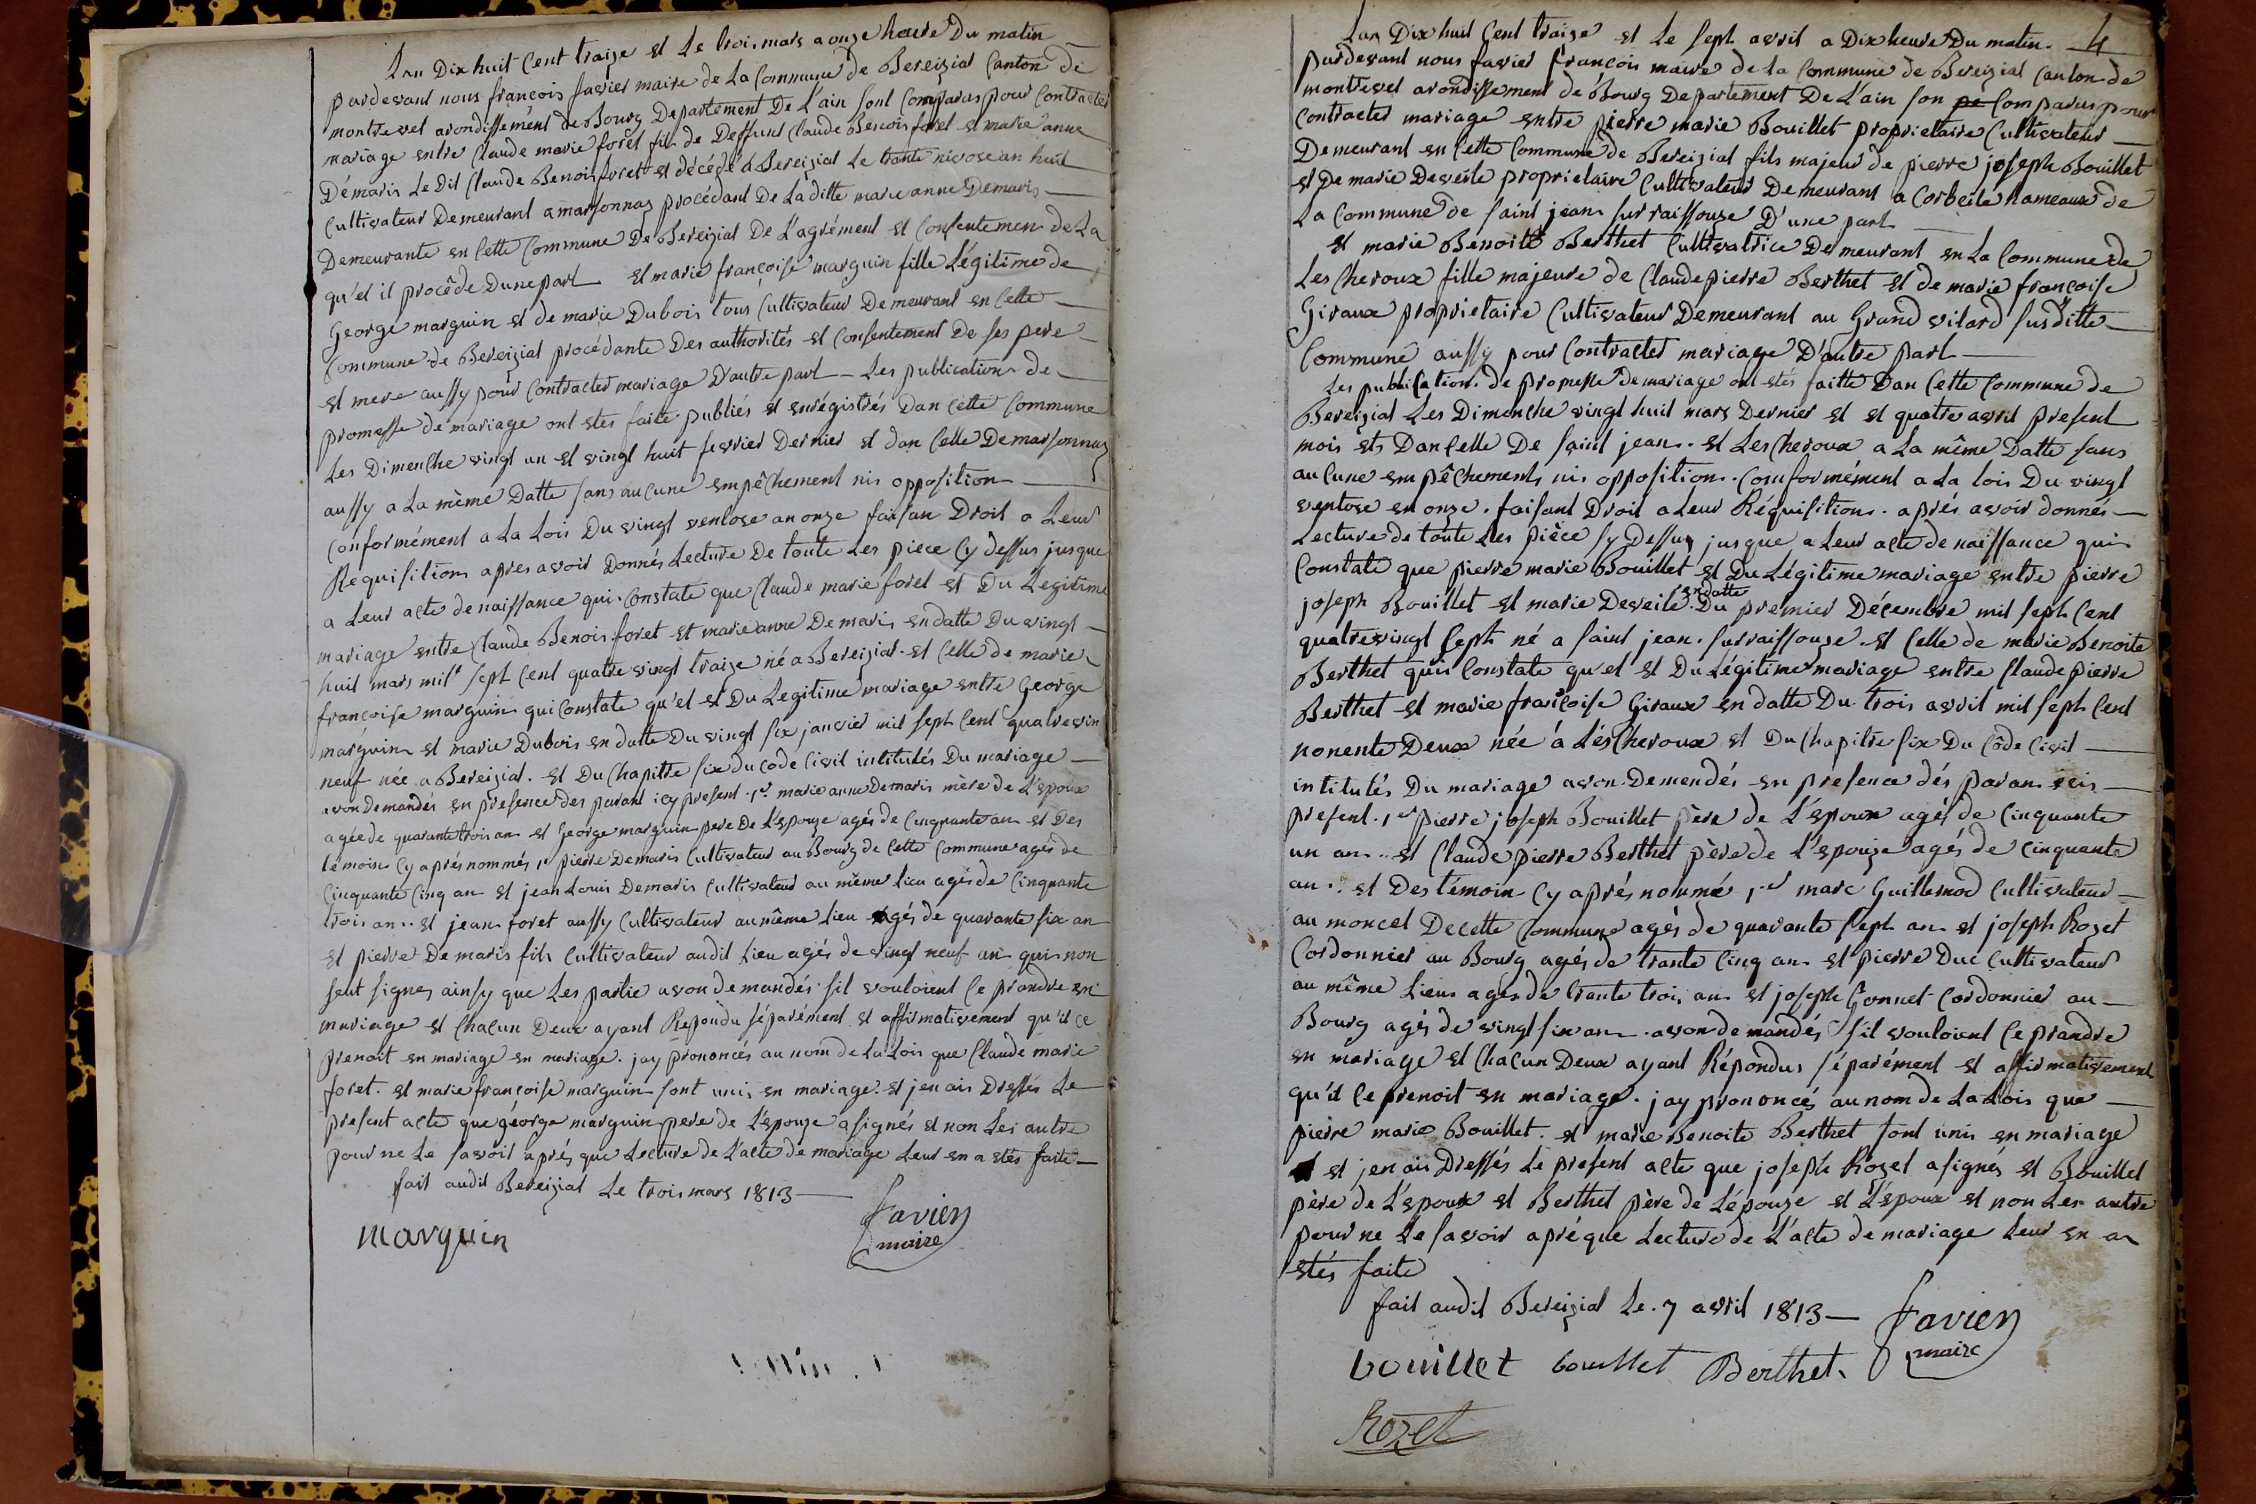 Lan Dix huit Cent traize et Le trois mars a onze heure Du matin
pardevant nous françois favier maire de La Commune de Bereizial Canton de
montrevel arondissement de Bourg Departement De L'ain sont Comparus pour Contracter
mariage entre Claude marie foret fils de Deffunt Claude Benois foret et marie anne
Démaris Le Dit Claude Benois foret est décédé a Bereizial Le trante nivose an huit
Cultivateur Demeurant a marsonnaz procédant De La ditte marie anne Demaris
Demeurante en Cette Commune De Bereizial De L'agrément et Consentemen de La
qu'el il procêde Dune part et marie françoise marguin fille Légitime de
George marguin et de marie Dubois tous Cultivateur Demeurant en Cette
Commune de Bereizial procédante Des authorités et Consentement De ses pere
et mere aussy pour Contracter mariage D'autre part - Les publication de
promesse de mariage ont etés faite publiés et enregistrés Dan Cette Commune
Les Dimenche vingt un et vingt huit fevrier Dernier et dan Celle De marsonnaz
aussy a La même Datte sans aucune empêchement nis opposition
Conformément a La Lois Du vingt ventose an onze faisan Droit a Leur
Requisition apres avoir Donnés Lecture De toute Les piece Cy dessus jusque
a Leur acte de naissance qui Constate que Claude marie foret est Du Legitime
mariage entre Claude Benois foret et marie anne Demaris en datte Du vingt
huit mars mil sept Cent quatre vingt traize né a Bereizial. et Celle de marie
françoise marguin qui Constate qu'el est Du Legitime mariage entre George
marguin et marie Dubois en datte Du vingt six janvier mil sept Cent quatrevin
neuf née a Bereizial. et Du Chapitre six du Code Civil intitulés Du mariage
avon Demandés en presence des parant icy present. 1er marie anne Demaris mère de L'epoux
agée de quarante trois an et George marguin pere De L'epouze agés de Cinquante an et Des
témoin Cy aprés nommés 1er pierre Demaris Cultivateur au Bourg de Cette Commune agés de
Cinquante Cinq an et jean Louis Demaris Cultivateur au même Lieu agés de Cinquante
trois an.. et jean foret aussy Cultivateur au même Lieu agés de quarante six an
et pierre Demaris fils Cultivateur audit Lieu agés de vingt neuf an qui non
seut signer ainsy que Les partie avon demandés sil vouloient Ce prandre en
mariage et Chacun Deux ayant Repondu séparément et affirmativement qu'il Ce
prenoit en mariage en mariage. jay prononcés au nom de La Lois que Claude marie
foret. et marie françoise marguin sont unis en mariage. et jen ais Dressés Le
present acte que géorge marguin pere de L'epouze a signés et non Les autre
pour ne Le savoir aprés que Lecture de L'acte de mariage Leur en a etés faite
fait audit Bereizial Le trois mars 1813
marguin
favier
maire
4
Lan Dix huit Cent traize et Le sept avril a Dix heure Du matin
pardevant nous favier françois maire de La Commune de Bereizial Canton de
montrevel arondissement de Bourg Departement De L'ain son pé Comparus pour
Contracter mariage entre pierre marie Bouillet proprietaire Cultivateur
Demeurant en Cette Commune de Bereizial fils majeur de pierre joseph Bouillet
et De marie Deveile proprietaire Cultivateur Demeurant a Corbeile hameaux de
La Commune de saint jean sur raissouze D'une part
et marie Benoite Berthet Cultivatrice Demeurant en La Commune de
Les Cheroux fille majeure de Claude pierre Berthet et de marie françoise
Giraux proprietaire Cultivateur Demeurant au Grand vilard susditte
Commune aussy pour Contracter mariage D'autre part
Les publication de promesse de mariage ont etés faitte Dan Cette Commune de
Bereizial Les Dimenche vingt huit mars Dernier et et quatre avril present
mois et Dan Celle De saint jean. et Les Cheroux a La même Datte sans
aucune empêchement nis opposition. Comformément a La lois Du vingt
ventose en onze. faisant Droit a Leur Réquisition. aprés avoir donnés
Lecture de toute Les pièce sy Dessus jusque a Leur acte de naissance qui
Constate que pierre marie Bouillet est Du Légitime mariage entre pierre
joseph Bouillet et marie Deveile. en datte Du premier Décembre mil sept Cent
quatrevingt sept né a saint jean. sur raissouze. et Celle de marie Benoite
Berthet qui Constate qu'el est Du Légitime mariage entre Claude pierre
Berthet et marie françoise Giraux en datte Du trois avril mil sept Cent
nonente Deux née á Lés Cheroux et Du Chapitre six Du Côde Civil
intitulés Du mariage avon Demendés en présence dés paran icis
present. 1er pierre joseph Bouillet pére de L'époux agés de Cinquante
un an.. et Claude pierre Berthet père de L'epouze agés de Cinquante
an.. et Des témoin Cy aprés nommé 1er marc Guillemod Cultivateur
au moncel De Cette Commune agés de quarante sept an. et joseph Rozet
Cordonnier au Bourg agés de trante Cinq an. et pierre Duc Cultivateur
au même Lieu agés de trante trois an et joseph Gonnet Cordonnier au
Bourg agés de vingt six an. avon demandés sil vouloient Ce prandre
en mariage et Chacun Deux ayant Répondus séparément et affirmativement
qu'il Ce prenoit en mariage. jay prononcés au nom de La Lois que
pierre marie Bouillet. et marie Benoite Berthet sont unis en mariage
et jen ais Dressés Le present acte que joseph Rozet a signés et Bouillet
père de L'epoux et Berthet père de L'épouze et L'époux et non Les autre
pour ne Le savoir apré que Lecture de L'acte de mariage Leur en a
etés faite
fait audit Bereizial Le. 7 avril 1813
favier
maire
bouillet bouillet Berthet
Rozet